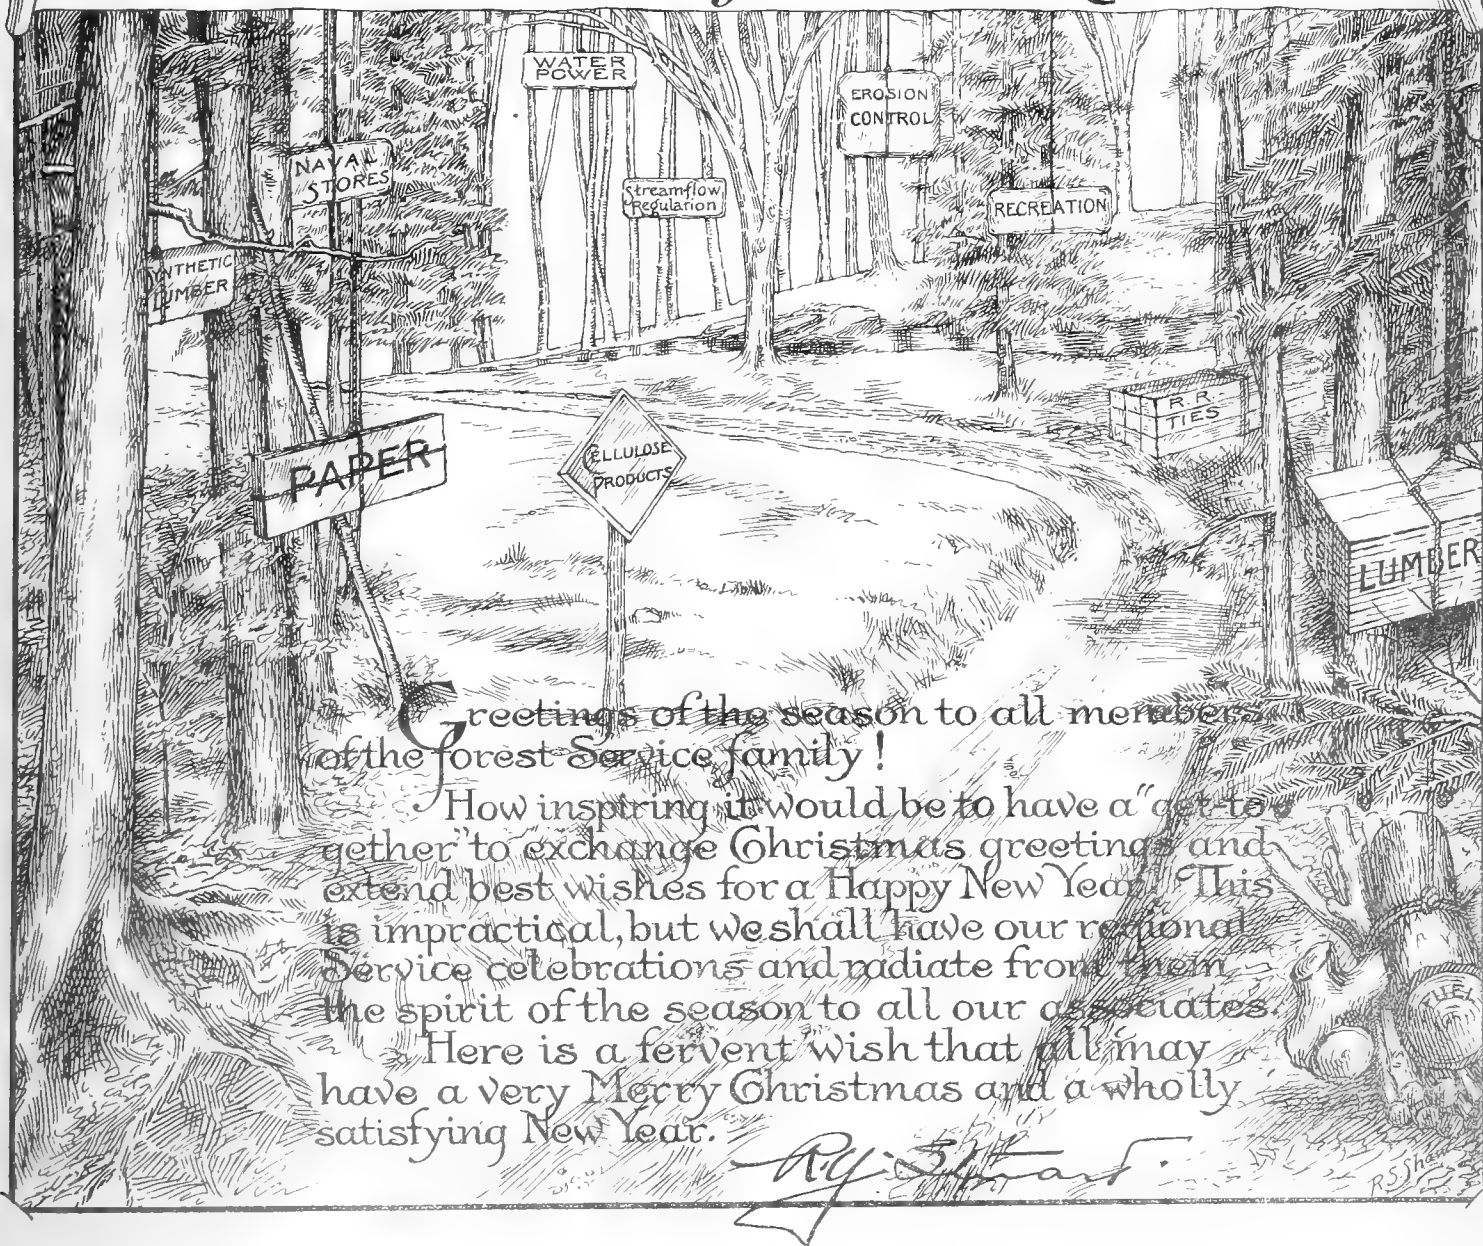 WATER
POWER
EROSION
CONTROL
NAVAL
STORES
Streamflow
Regulation
RECREATION
YNTHETIC
LUMBER
R R
TIES
PAPER
CELLULOSE
PRODUCTS
LUMBER
Greetings of the season to all members
of the forest Service family!
How inspiring it would be to have a "get-to
gether" to exchange Christmas greetings and
extend best wishes for a Happy New Year. This
is impractical, but we shall have our regional
Service celebrations and radiate from them
the spirit of the season to all our associates.
Here is a fervent wish that all may
have a very Merry Christmas and a wholly
satisfying New Year.
FUEL
R.Y. Stuart.
R.S. Shaw